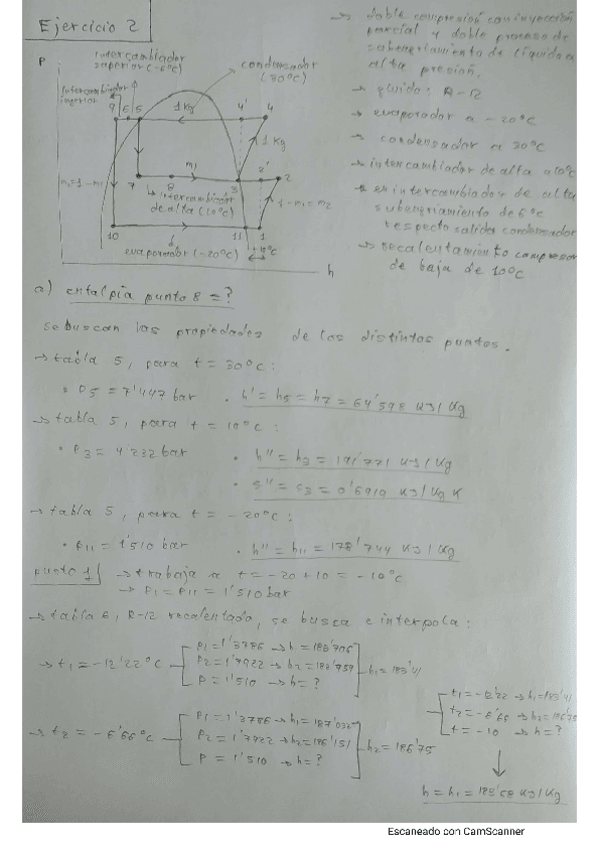 Ejercicio 2
→ doble compresión con inyección
parcial y doble proceso de
subenfriamiento de líquido a
alta presión.
→ fluido: R-12
→ evaporador a -20ºC
→ condensador a 30ºC
→ intercambiador de alta a 10ºC
→ el intercambiador de alta
subenfriamiento de 6ºC
respecto salida condensador
→ recalentamiento compresor
de baja de 10ºC
P
intercambiador
superior (-6ºC)
condensador
(30ºC)
intercambiador
inferior
9 6 5
1 kg
4' 4
1 kg
m1
7 8
3 2' 2
intercambiador
de alta (10ºC)
1-m1=m2
10
11 1
+10ºC
evaporador (-20ºC)
h
a) entalpía punto 8 = ?
se buscan las propiedades de los distintos puntos.
→ tabla 5, para t = 30ºC:
• P5 = 7'447 bar • h' = h5 = h7 = 64'598 kJ/kg
→ tabla 5, para t = 10ºC:
• P3 = 4'232 bar • h'' = h3 = 191'771 kJ/kg
• s'' = s3 = 0'6919 kJ/kg K
→ tabla 5, para t = -20ºC:
• P11 = 1'510 bar • h'' = h11 = 178'744 kJ/kg
punto 1 → trabaja a t = -20 + 10 = -10ºC
→ P1 = P11 = 1'510 bar
→ tabla 6, R-12 recalentado, se busca e interpola:
→ t1 = -12'22ºC
P1 = 1'3786 → h =
P2 = 1'7922 → h2 =
P = 1'510 → h = ?
→ t2 = -6'66ºC
P1 = 1'3786 → h1 =
P2 = 1'7922 → h2 =
P = 1'510 → h = ?
h2 = 186'75
t1 = -12'22 →
t2 = -6'66 → h2 = 186'75
t = -10 → h = ?
Escaneado con CamScanner